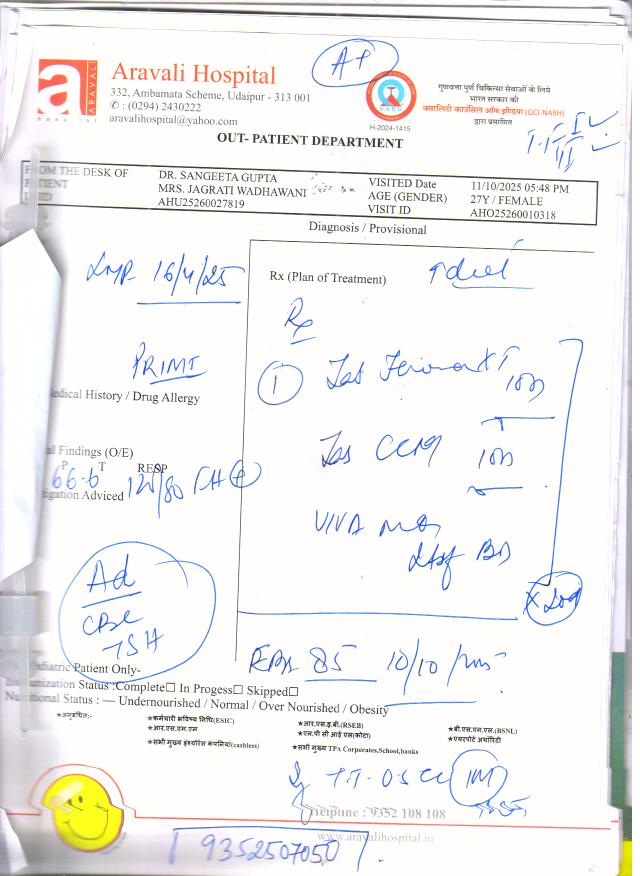 AP
ARAVALI
Aravali Hospital
332, Ambamata Scheme, Udaipur - 313 001
✆ : (0294) 2430222
aravalihospital@yahoo.com
NABH
H-2024-1415
गुणवत्ता पुर्ण चिकित्सा सेवाओं के लिये
भारत सरकार की
क्वालिटी काउंसिल ऑफ इण्डिया (QCI-NABH)
द्वारा प्रमाणित
OUT- PATIENT DEPARTMENT
FROM THE DESK OF DR. SANGEETA GUPTA VISITED Date 11/10/2025 05:48 PM
PATIENT MRS. JAGRATI WADHAWANI AGE (GENDER) 27Y / FEMALE
AHU25260027819 VISIT ID AHO25260010318
Diagnosis / Provisional
LMP 16/4/25
Rx (Plan of Treatment)
Rx
PRIMI
①
edical History / Drug Allergy
al Findings (O/E)
P T RESP
66.6 120/80 FH +
igation Adviced
Tab CCM
VIVA
BD
Ad
CBC
TSH
85 10/10
diatric Patient Only-
unization Status :Complete☐ In Progess☐ Skipped☐
Nutritional Status : — Undernourished / Normal / Over Nourished / Obesity
★अनुबंधित:- ★कर्मचारी भविष्य निधि(ESIC) ★आर.एस.इ.बी.(RSEB) ★बी.एस.एन.एल.(BSNL)
★आर.एस.एम.एम ★एल.पी सी आई एल(कोटा) ★एयरपोर्ट अथॉरिटी
★सभी मुख्य इंश्योरेंस कंपनियां(cashless) ★सभी मुख्य TPA Corporates,School,banks
T.T. 0.5 CC IM
Helpline : 9352 108 108
www.aravalihospital.in
9352507050